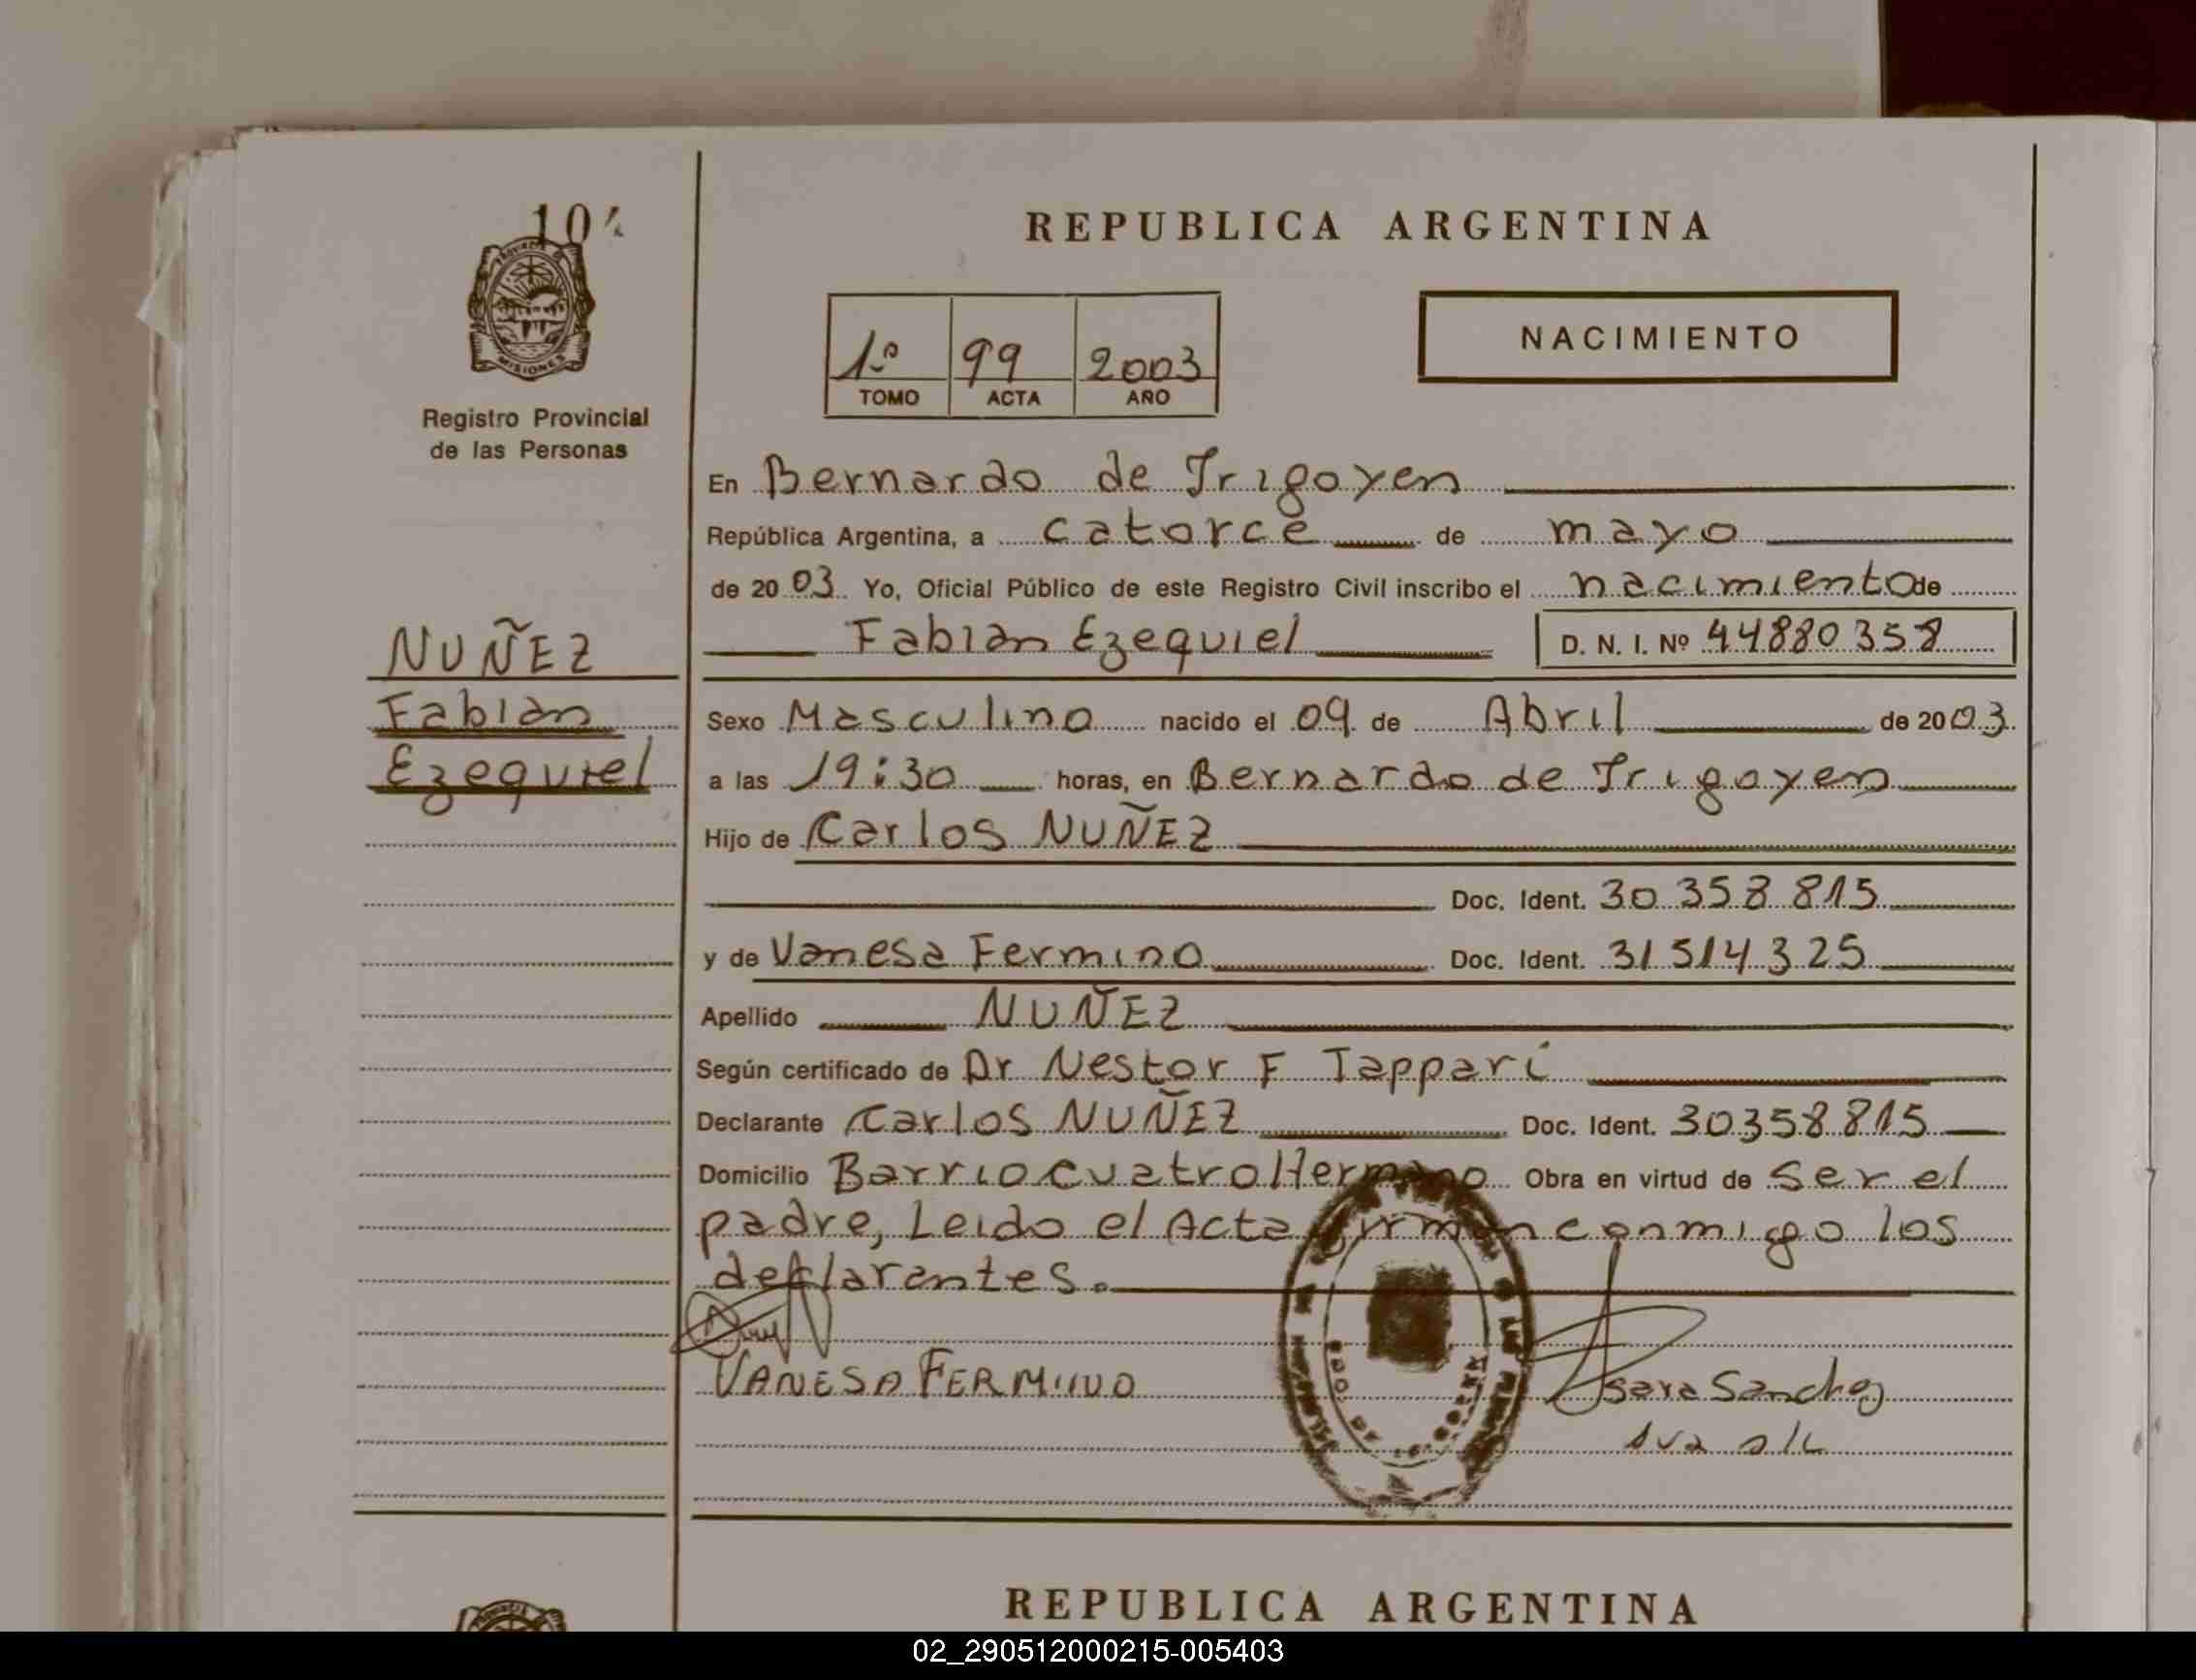 104
PROVINCIA DE
MISIONES
Registro Provincial
de las Personas
NUÑEZ
Fabian
Ezequiel
REPUBLICA ARGENTINA
1º 99 2003
TOMO ACTA AÑO
NACIMIENTO
En Bernardo de Irigoyen
República Argentina, a catorce de mayo
de 2003. Yo, Oficial Público de este Registro Civil inscribo el nacimiento de
Fabian Ezequiel D. N. I. Nº 44880358
Sexo Masculino nacido el 09 de Abril de 2003.
a las 19:30 horas, en Bernardo de Irigoyen
Hijo de Carlos NUÑEZ
Doc. Ident. 30 358 815
y de Vanesa Fermino Doc. Ident. 31 514 325
Apellido NUÑEZ
Según certificado de Dr Nestor F Tappari
Declarante Carlos NUÑEZ Doc. Ident. 30358815
Domicilio Barrio cuatro Hermano Obra en virtud de ser el
padre, Leido el Acta firman conmigo los
declarantes.
VANESA FERMINO
Sara Sanchez
REPUBLICA ARGENTINA
02_290512000215-005403